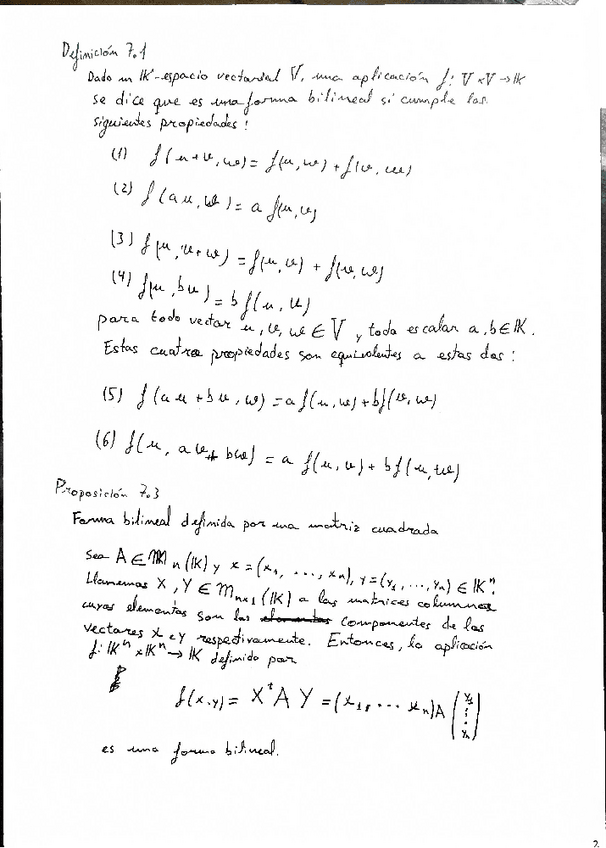 Definición 7.1
Dado un K-espacio vectorial V, una aplicación f: V×V→K
se dice que es una forma bilineal si cumple las
siguientes propiedades:
(1) f(u+v,w)=f(u,w)+f(v,w)
(2) f(au,v)=a f(u,v)
(3) f(u,v+w)=f(u,v)+f(v,w)
(4) f(u,bv)=b f(u,v)
para todo vector u,v,w∈V y todo escalar a,b∈K.
Estas cuatro propiedades son equivalentes a estas dos:
(5) f(au+bv,w)=a f(u,w)+bf(v,w)
(6) f(u,av+bw)=a f(u,v)+bf(u,w)
Proposición 7.3
Forma bilineal definida por una matriz cuadrada
Sea A∈Mn(K) y x=(x₁,...,xn), y=(y₁,...,yn)∈Kⁿ.
Llamemos X,Y∈Mn×1(K) a las matrices columnas
cuyos elementos son las componentes de los
vectores x e y respectivamente. Entonces, la aplicación
f: Kⁿ×Kⁿ→K definida por
f(x,y)= XᵗAY =(x₁,...xn)A(y₁ ⋮ yn)
es una forma bilineal.
2